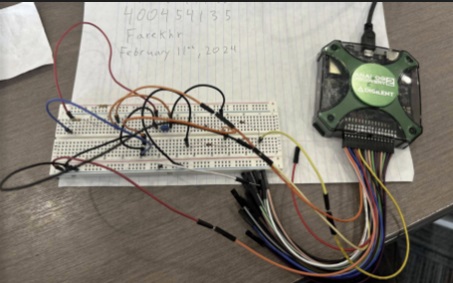 400454135
Farekhr
February 11th, 2024
DIGILENT